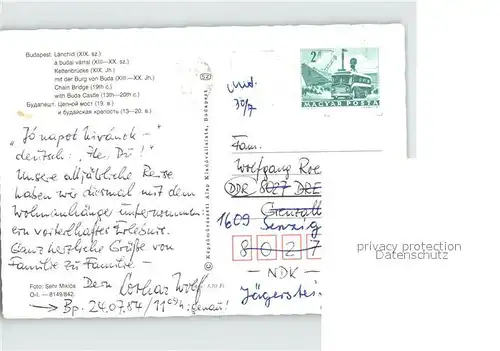 Budapest: Lánchíd (XIX. sz.)
a budai várral (XIII—XX. sz.)
Kettenbrücke (XIX. Jh.)
mit der Burg von Buda (XIII.—XX. Jh.)
Chain Bridge (19th c.)
with Buda Castle (13th—20th c.)
Будапешт. Цепной мост (19. в.)
и будайская крепость (13—20. в.)
"Jó napot kívánok –"
deutsch: "Hei, Du!"
Unsere alljährliche Reise
haben wir diesmal mit dem
Wohnanhänger unternommen
ein vorteilhafter Erlebnis.
Ganz herzliche Grüße von
Familie zu Familie –
Dein Lothar Wolf
Foto: Sehr Miklós
→ Bp. 24.07.84/11 09h genau!
52
Képzőművészeti Alap Kiadóvállalata, Budapest
30/7
2 Ft
MAGYAR POSTA
Fam.
Wolfgang
DDR 8027 DRE
1609
8027
– NDK –
privacy protection
Datenschutz